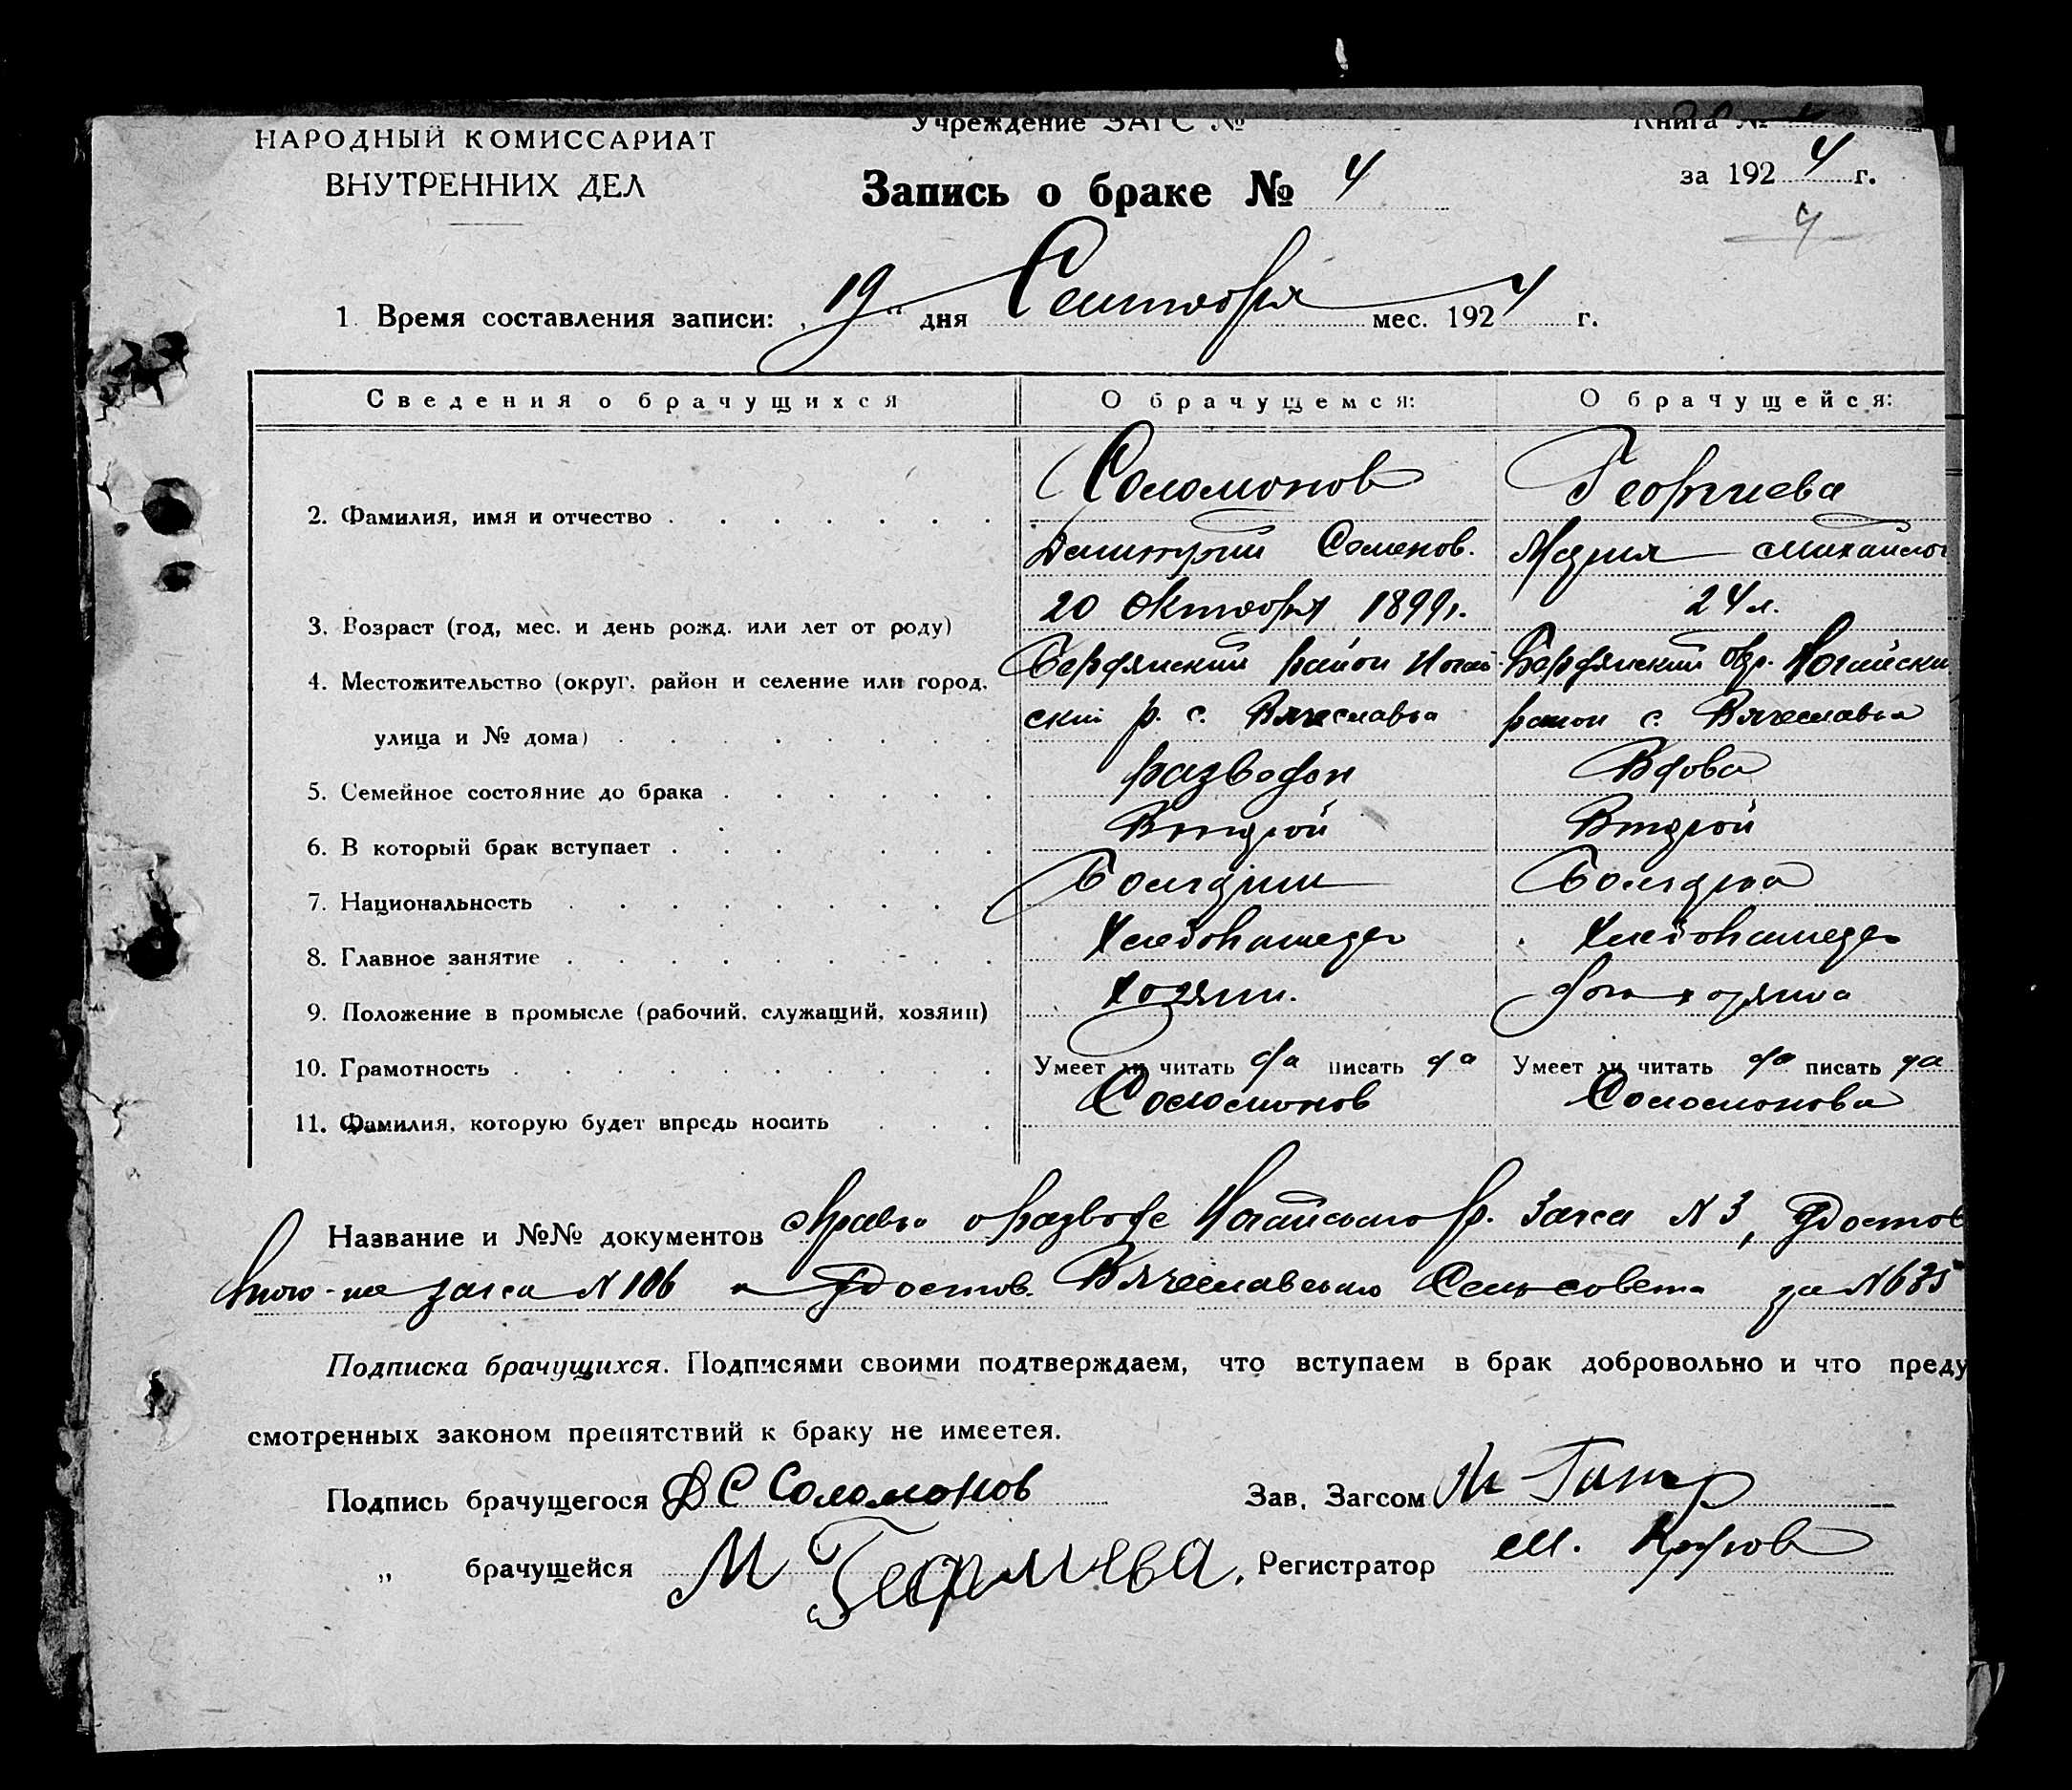 НАРОДНЫЙ КОМИССАРИАТ
ВНУТРЕННИХ ДЕЛ
Учреждение ЗАГС №
Книга №
Запись о браке № 4
за 1924 г.
4
1. Время составления записи: „19“ дня Сентября мес. 1924 г.
Сведения о брачущихся О брачущемся: О брачущейся:
Соломонов Георгиева
2. Фамилия, имя и отчество
Димитрий Семенов. Мария Михайлов
3. Возраст (год, мес. и день рожд. или лет от роду) 20 Октября 1899г. 24 л.
4. Местожительство (округ, район и селение или город, Бердянский район Ногай- Бердянский окр. Ногайски
улица и № дома) ский р. с. Вячеславка район с. Вячеславка
5. Семейное состояние до брака разведен Вдова
6. В который брак вступает Второй Второй
7. Национальность Болгарин Болгарка
8. Главное занятие Хлебопашец Хлебопашец
9. Положение в промысле (рабочий, служащий, хозяин) Хозяин. хозяина
10. Грамотность Умеет ли читать да писать да Умеет ли читать да писать да
11. Фамилия, которую будет впредь носить Соломонов Соломонова
Название и №№ документов справка о разводе Ногайского р. Загса N 3, Удостов
того-же загса N 106 и Удостов. Вячеславского Сельсовета за N 635
Подписка брачущихся. Подписями своими подтверждаем, что вступаем в брак добровольно и что преду
смотренных законом препятствий к браку не имеетея.
Подпись брачущегося Д С Соломонов Зав. Загсом
„ брачущейся М Георгиева. Регистратор